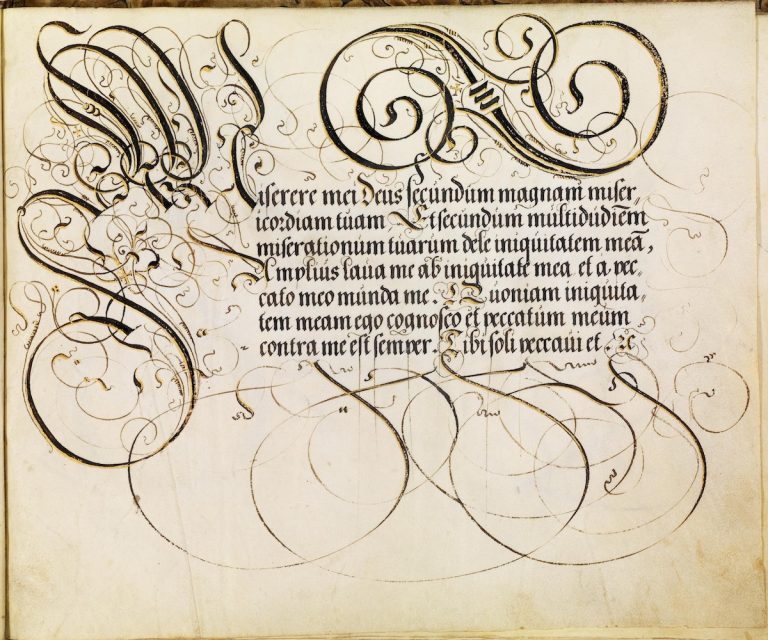 Miserere mei Deus secundum magnam miser,,
icordiam tuam Et secundum multidudiem
miserationum tuarum dele iniquitatem meā,
Amplius laua me ab iniquitate mea et a pec,,
cato meo munda me. Quoniam iniquita,,
tem meam ego cognosco et peccatum meum
contra me est semper. Tibi soli peccaui et